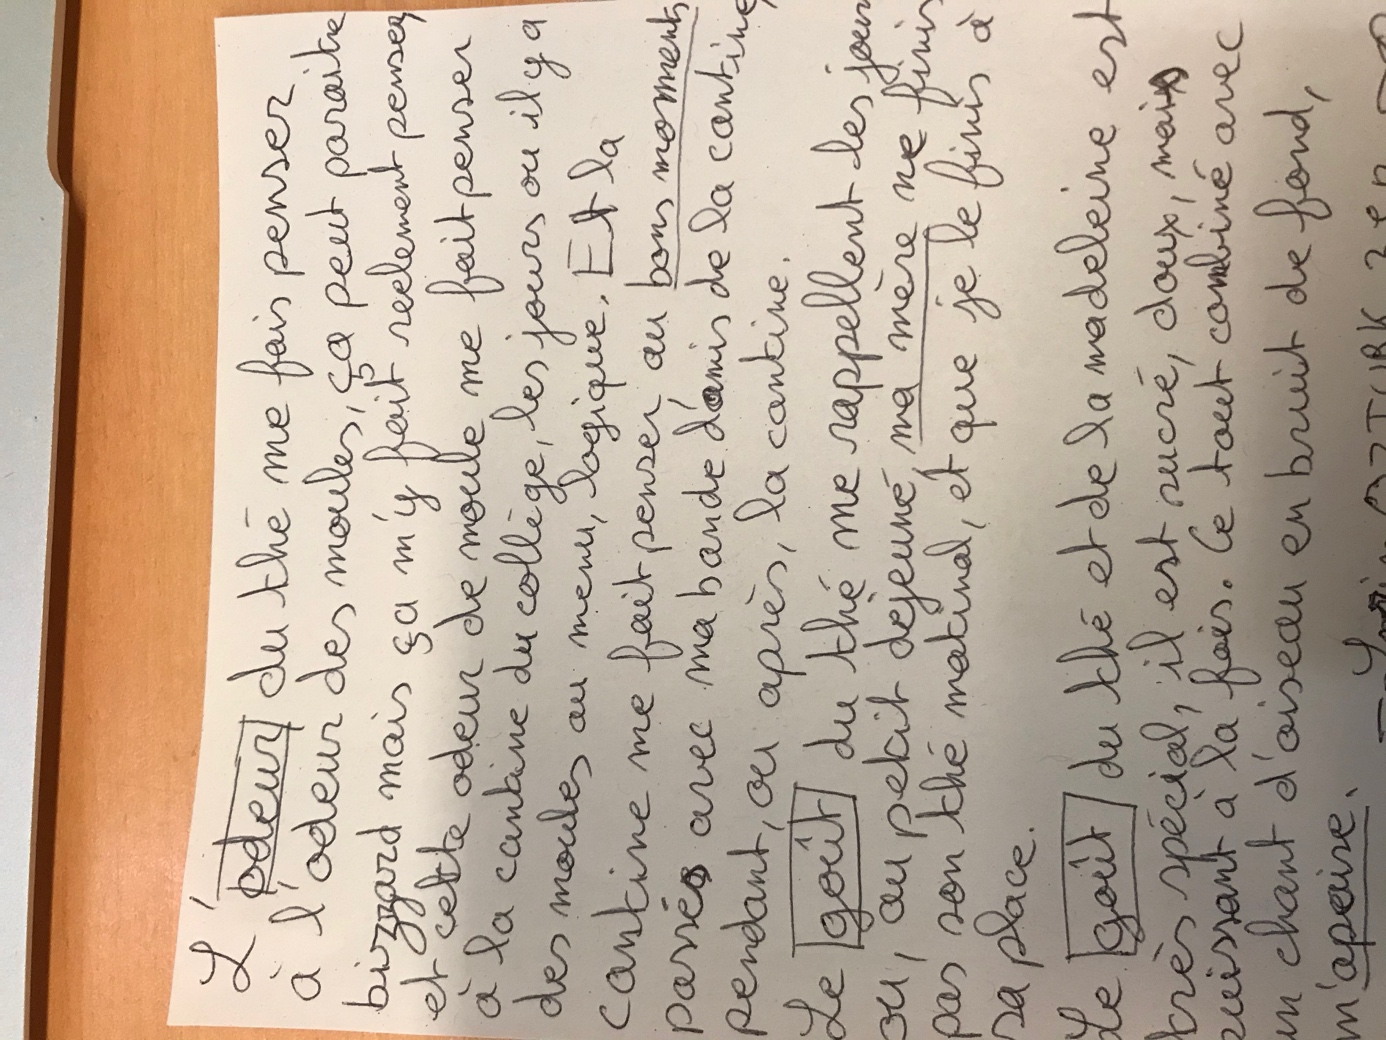 L'odeur du thé me fais penser
à l'odeur des moules, ça peut paraitre
bizzard mais ça m'y fait reelement penser,
et cette odeur de moule me fait penser
à la cantine du collège, les jours ou il y a
des moules au menu, logique. Et la
cantine me fait penser au bons moments
passés avec ma bande d'amis de la cantine,
pendant, ou après, la cantine.
Le goût du thé me rappellent les jours
ou, au petit dejeuné, ma mère ne finis
pas son thé matinal, et que je le finis à
sa place.
Le goût du thé et de la madeleine est
très spécial, il est sucré, doux, mais
puissant à la fois. Ce tout combiné avec
un chant d'oiseau en bruit de fond,
m'apaise.
OZTURK